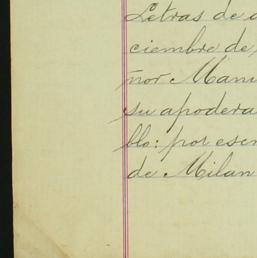 Letras de
ciembre de,
ñor Manu
su apodera
blo: por escr
de Milan